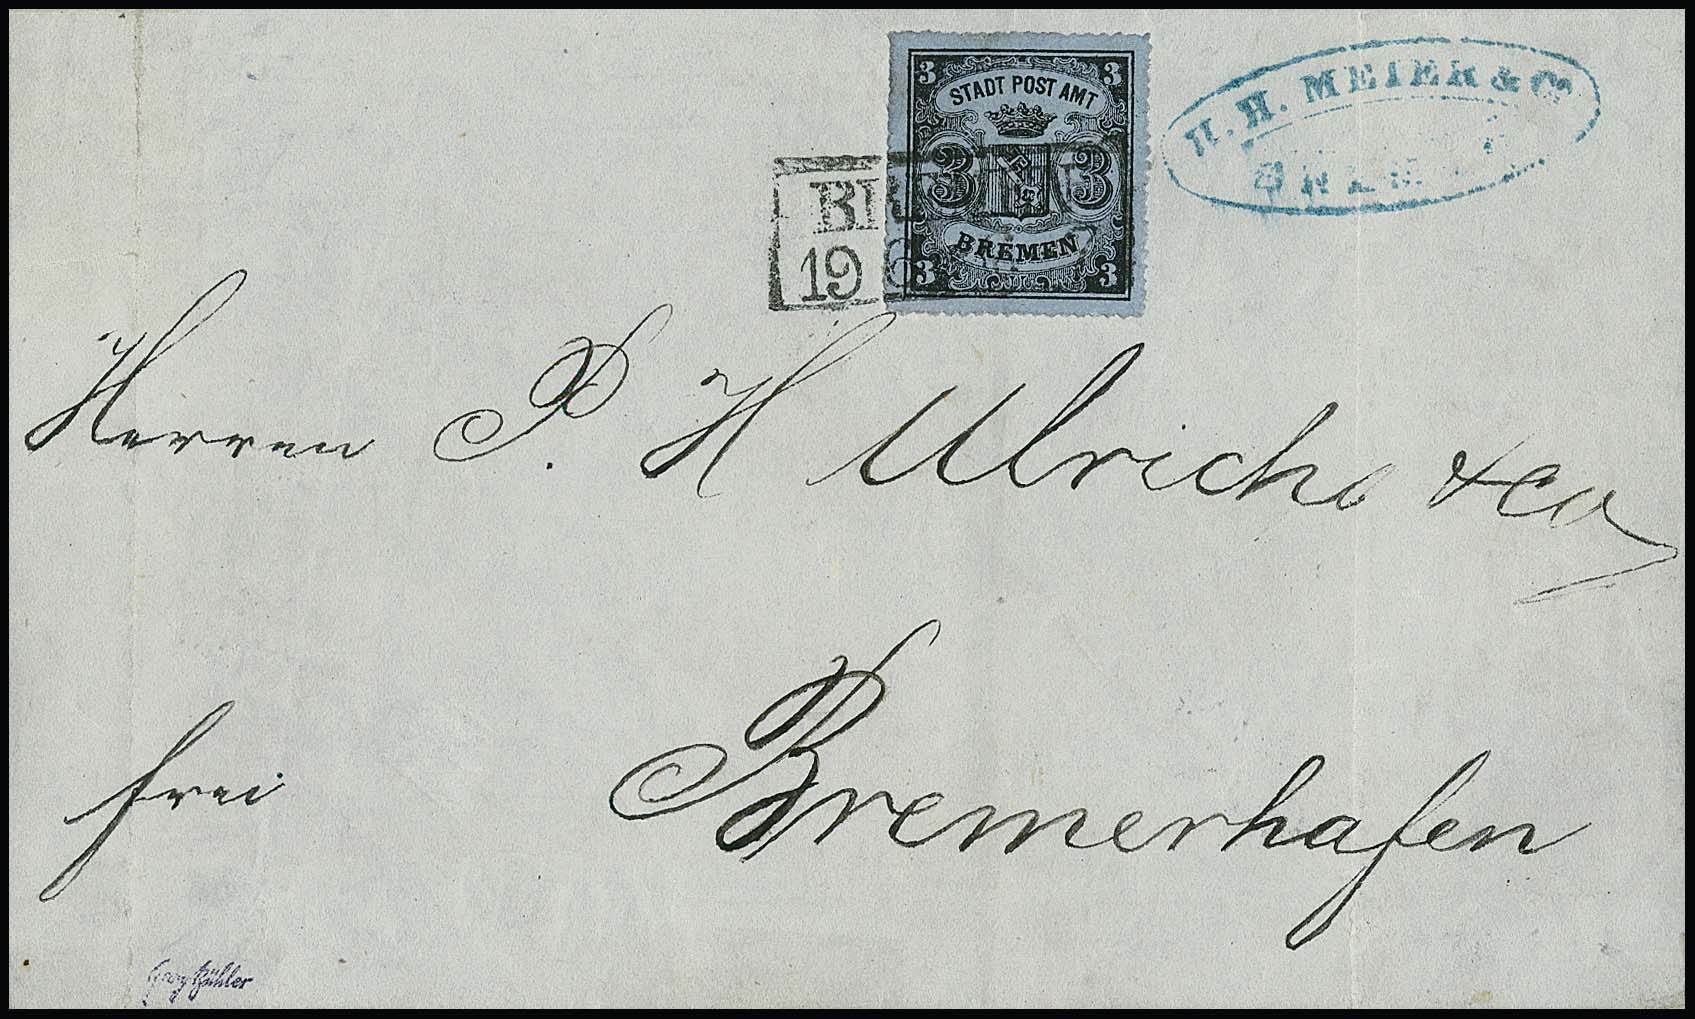 3 3
STADT POST AMT
3 3
BREMEN
3 3
H. H. MEIER & Co
BREM
BR
19 6
Herren P. H Ulrichs & Co
frei Bremerhafen
Georg Bühler